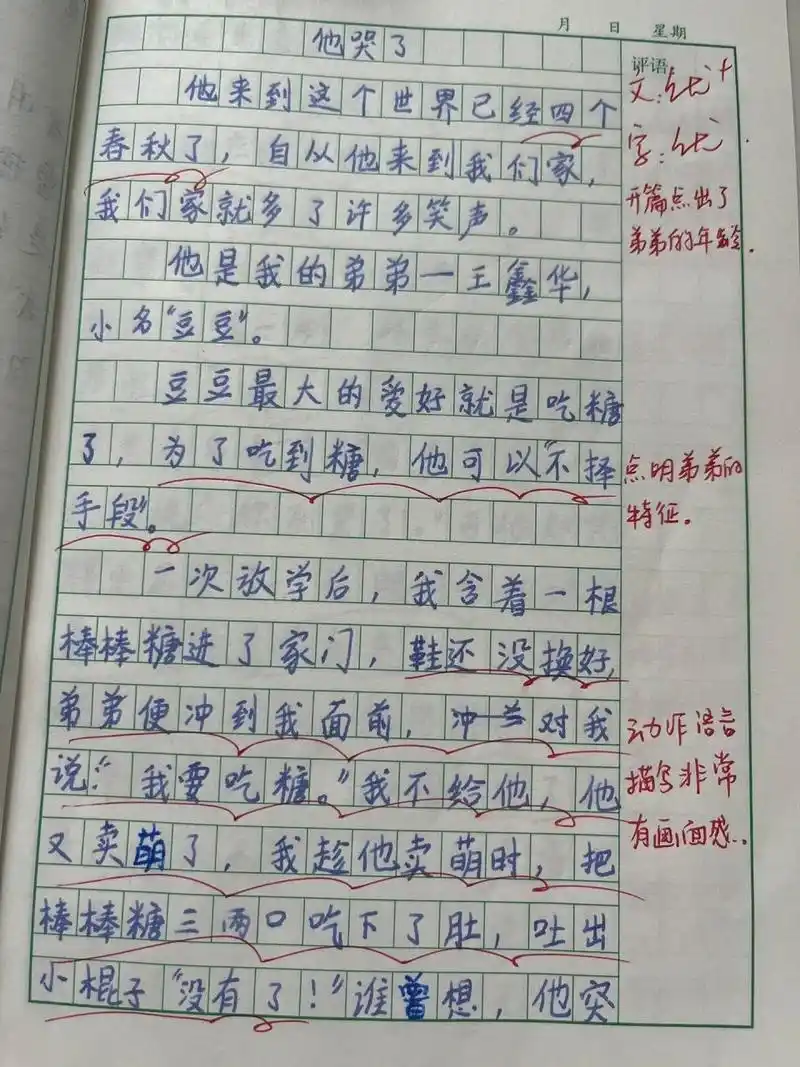 月 日 星期
他哭了
评语:
他来到这个世界已经四个
文:优+
春秋了，自从他来到我们家，
字:优
我们家就多了许多笑声。
开篇点出了
弟弟的年龄.
他是我的弟弟一王鑫华，
小名“豆豆”。
豆豆最大的爱好就是吃糖
了，为了吃到糖，他可以“不择
点明弟弟的
手段”。
特征。
一次放学后，我含着一根
棒棒糖进了家门，鞋还没换好，
弟弟便冲到我面前，冲兰对我
动作语言
说:“我要吃糖。”我不给他，他
描写非常
又卖萌了，我趁他卖萌时，把
有画面感..
棒棒糖三两口吃下了肚，吐出
小棍子“没有了！”谁曾想，他突